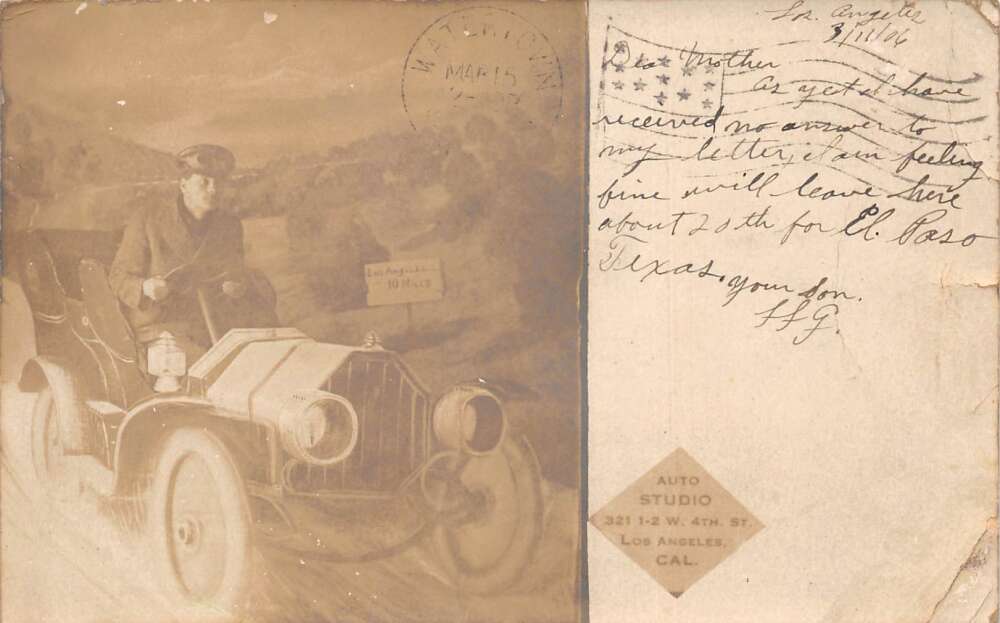 WATERTOWN
MAR 15
Los Angeles
10 Miles
Los Angeles
3/11/06
Dear Mother
As yet I have
received no answer to
my letter, I am feeling
fine will leave here
about 20th for El Paso
Texas, your son.
AUTO
STUDIO
321 1-2 W. 4TH. ST.
LOS ANGELES,
CAL.